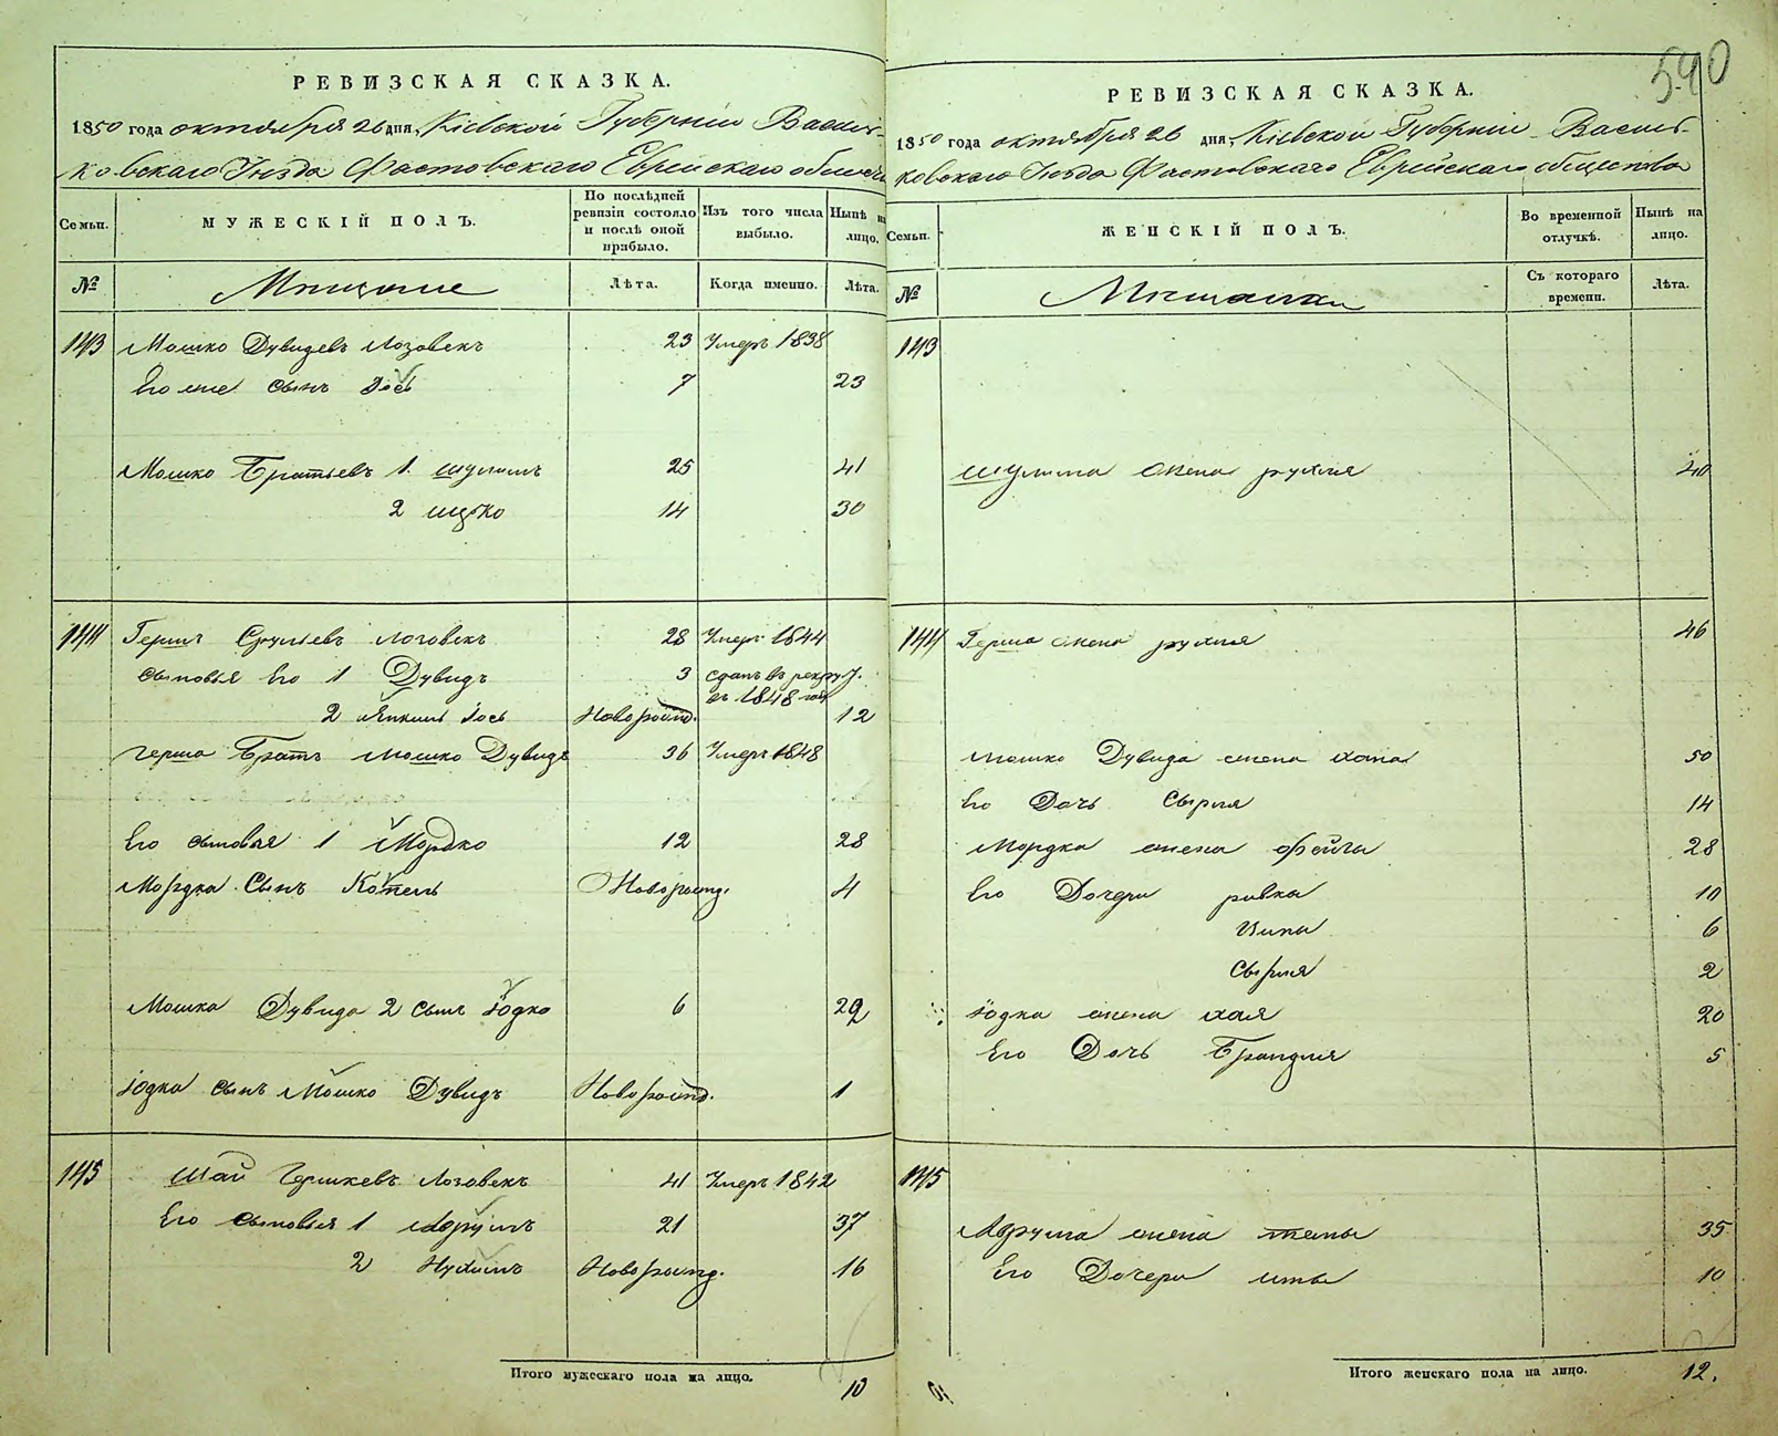 590
РЕВИЗСКАЯ СКАЗКА.
1850 года октября 26 дня, Кіевской Губерніи Василь-
ковскаго Уѣзда Фастовскаго Еврейскаго общест
Семьи.
МУЖЕСКІЙ ПОЛЪ.
По послѣдней ревизіи состояло и послѣ оной прибыло.
Изъ того числа выбыло.
Нынѣ на лицо.
№
Мѣщане
Лѣта.
Когда именно.
Лѣта.
143 Мошко Дувидевъ Лозовскъ 23 Умеръ 1838
Его же сынъ Іось 7 23
Мошко Братьевъ 1. Шулимъ 25 41
2 Ицко 14 30
144 Гершъ Срулевъ Лозовскъ 28 Умеръ 1844
Сыновья Его 1 Дувидъ 3 сданъ въ рекрут.
въ 1848 год
2 Янкель Іось Новорожд. 12
Герша Братъ Мошко Дувидъ 36 Умеръ 1848
Его сыновья 1 Мордко 12 28
Мордка Сынъ Копель Новорожд. 4
Мошка Дувида 2 сынъ Іодко 6 22
Іодка сынъ Мошко Дувидъ Новорожд. 1
145 Шай Гершковъ Лозовскъ 41 Умеръ 1842
Его Сыновья 1 Аврумъ 21 37
2 Нухимъ Новорожд. 16
Итого мужескаго пола на лицо. 10
РЕВИЗСКАЯ СКАЗКА.
1850 года октября 26 дня, Кіевской Губерніи Василь-
ковскаго Уѣзда Фастовскаго Еврейскаго общества
Семьи.
ЖЕНСКІЙ ПОЛЪ.
Во временной отлучкѣ.
Нынѣ на лицо.
№
Мѣщанки
Съ котораго времени.
Лѣта.
143
Шулима жена Рухля 40
144 Герша жена Рухля 46
Мошко Дувида жена Хана 50
Его Дочь Сырля 14
Мордка жена Фейга 28
Его Дочери Ривка 10
Ципа 6
Сырля 2
Іодка жена Хая 20
Его Дочь Брандля 5
145
Аврума жена 35
Его Дочери 10
Итого женскаго пола на лицо. 12.